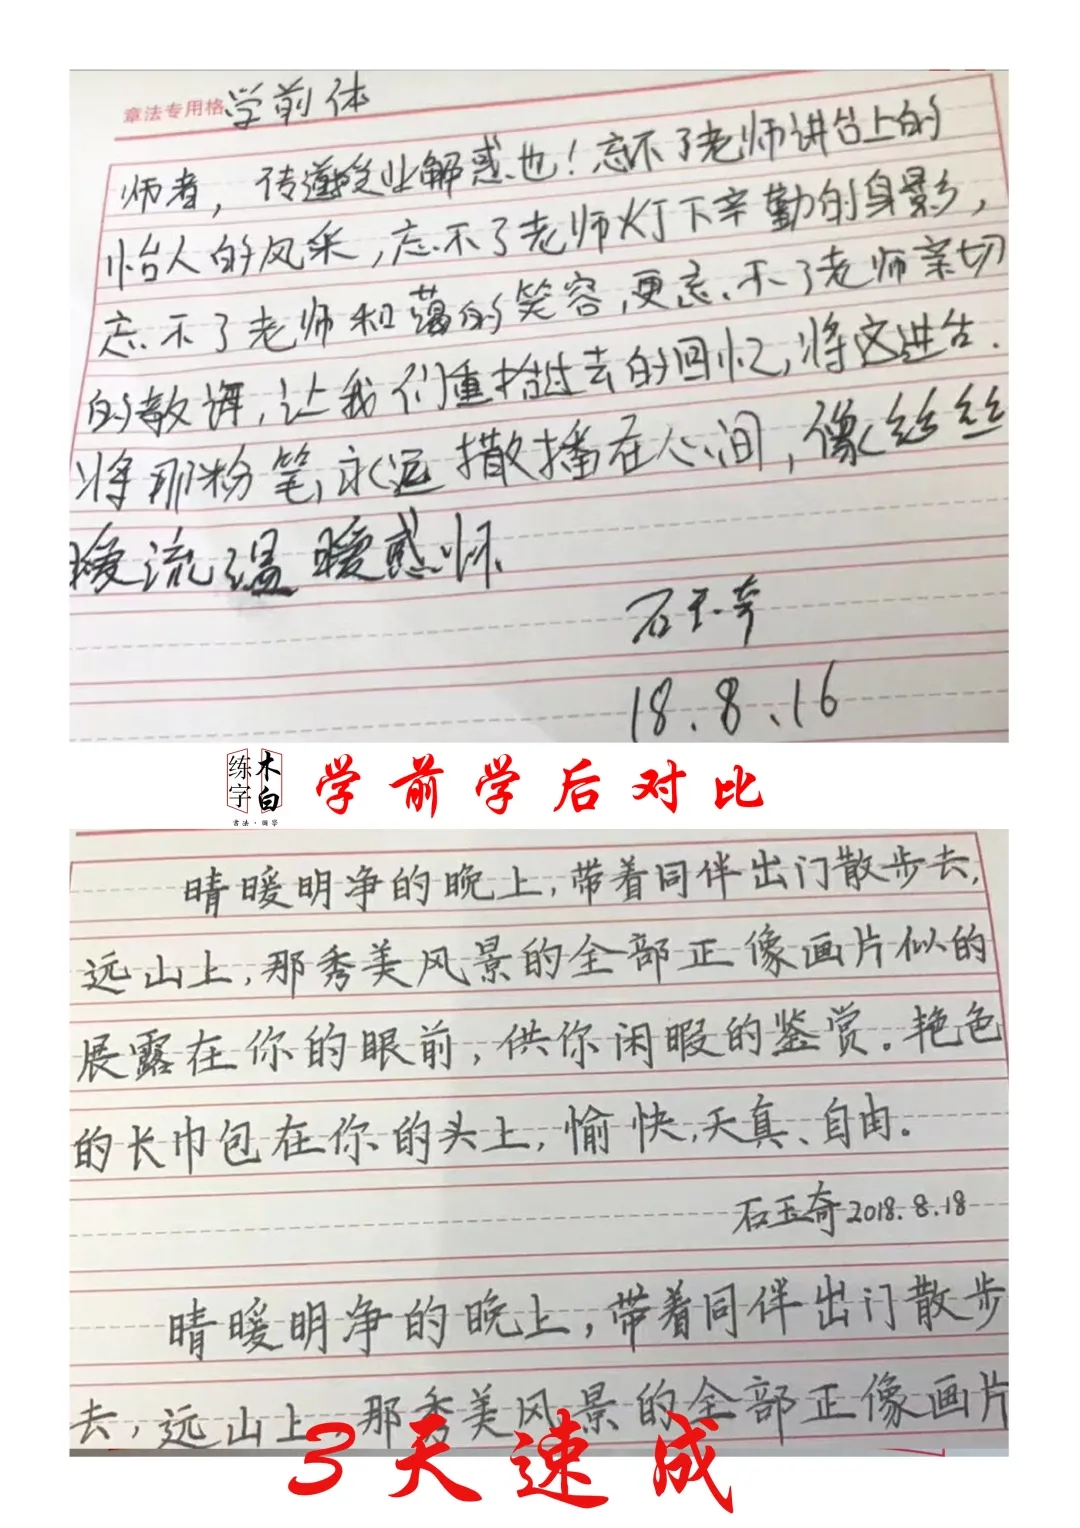 章法专用格 学前体
师者，传道受业解惑也！忘不了老师讲台上的
怡人的风采，忘不了老师灯下辛勤的身影，
忘不了老师和蔼的笑容，更忘不了老师亲切
的教诲，让我们重拾过去的回忆，将这讲台.
将那粉笔，永远撒播在心间，像丝丝
暖流温暖感怀.
石玉奇
18.8.16
练字 木白
学前学后对比
晴暖明净的晚上，带着同伴出门散步去，
远山上，那秀美风景的全部正像画片似的
展露在你的眼前，供你闲暇的鉴赏。艳色
的长巾包在你的头上，愉快，天真、自由。
石玉奇 2018.8.18
晴暖明净的晚上，带着同伴出门散步
去，远山上 那秀美风景的全部正像画片
3天速成